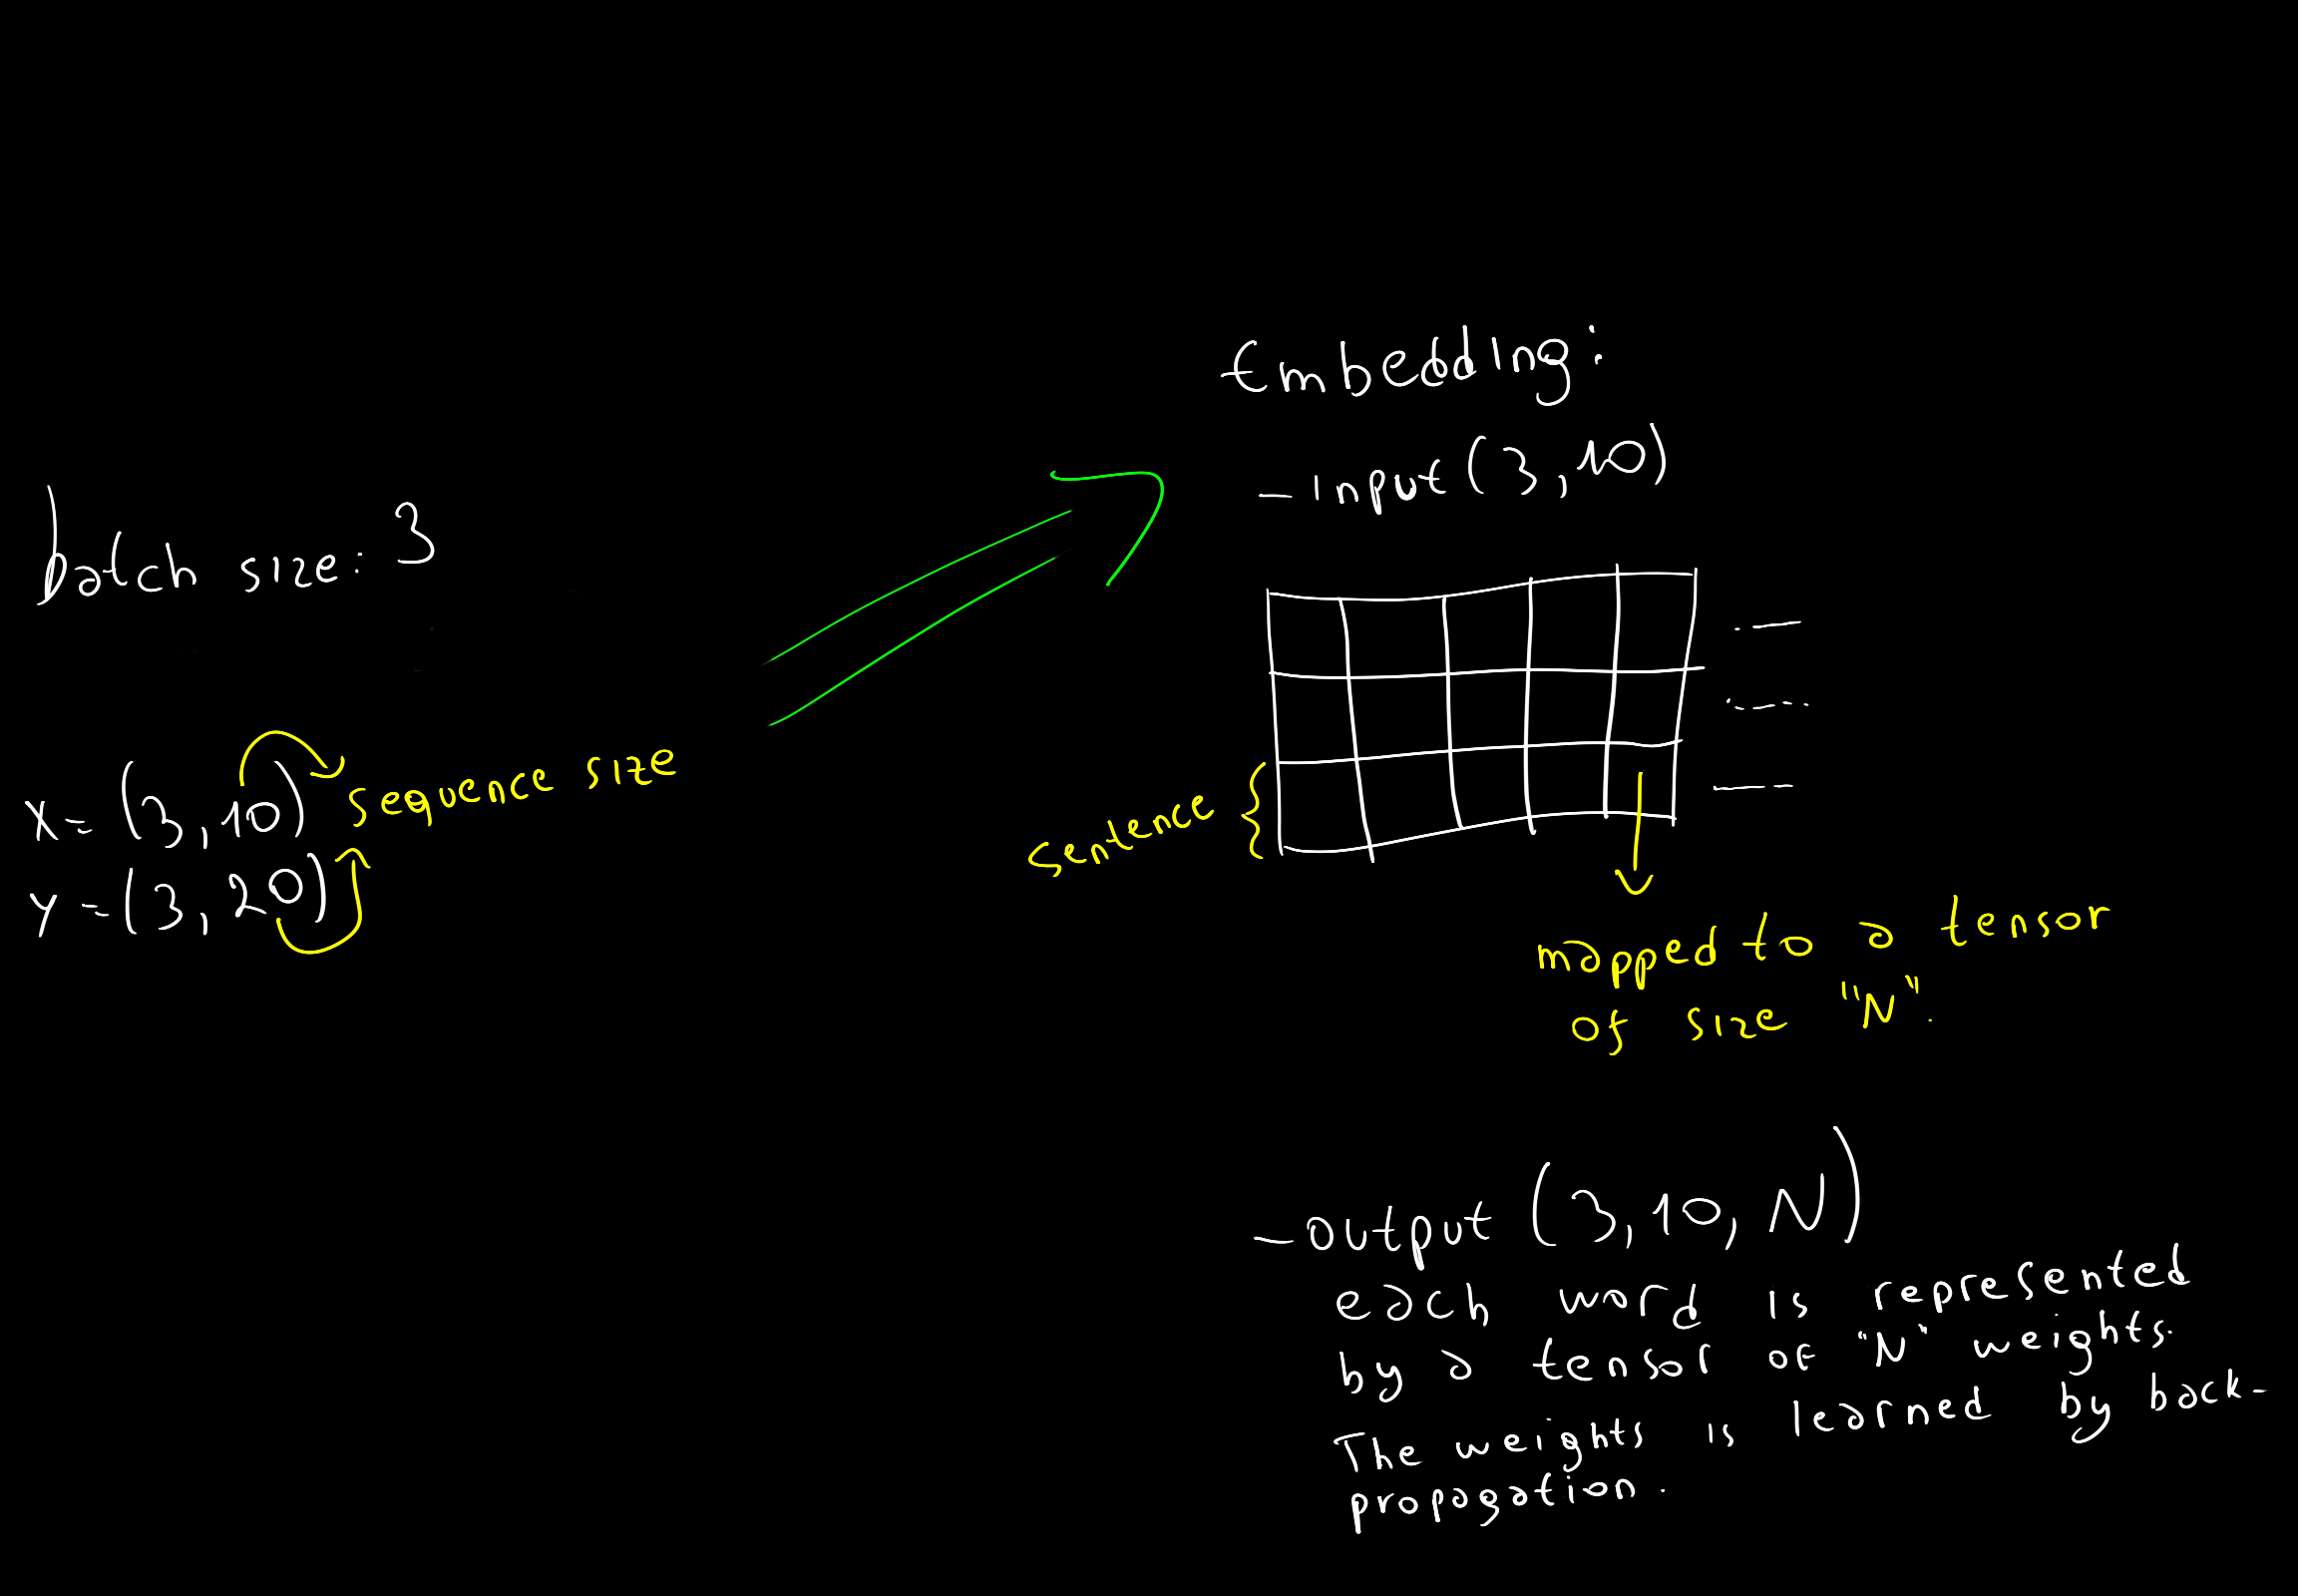 batch size: 3
X= (3,10)
sequence size
Y=(3,20)
Embedding:
- input (3,10)
sentence
mapped to a tensor
of size "N".
- output (3,10,N)
each word is represented
by a tensor of "N" weights.
The weights is learned by back-
propagation.